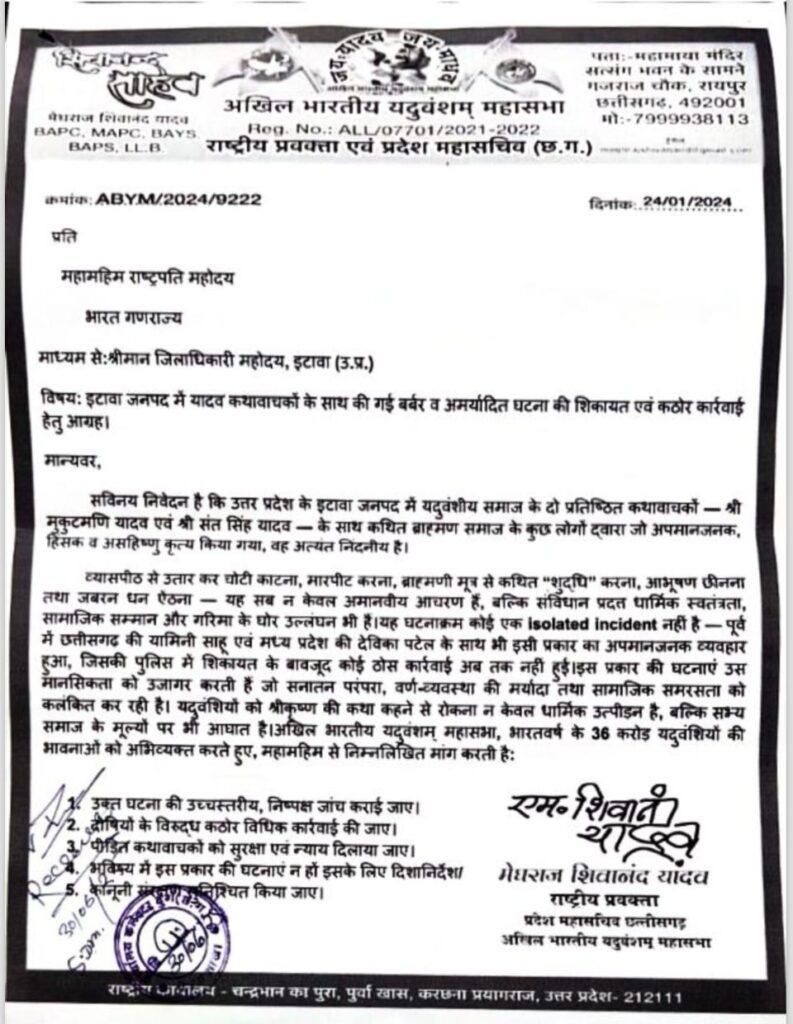 शिवानन्द
साहेब
मेघराज शिवानंद यादव
BAPC, MAPC, BAYS,
BAPS, LL.B.
जय यादव जय माधव
अखिल भारतीय यदुवंशम् महासभा
Reg. No.: ALL/07701/2021-2022
राष्ट्रीय प्रवक्ता एवं प्रदेश महासचिव (छ.ग.)
पता:-महामाया मंदिर
सत्संग भवन के सामने
गजराज चौक, रायपुर
छत्तीसगढ़, 492001
मो:-7999938113
क्रमांक: ABYM/2024/9222
दिनांक: 24/01/2024
प्रति
महामहिम राष्ट्रपति महोदय
भारत गणराज्य
माध्यम से:श्रीमान जिलाधिकारी महोदय, इटावा (उ.प्र.)
विषय: इटावा जनपद में यादव कथावाचकों के साथ की गई बर्बर व अमर्यादित घटना की शिकायत एवं कठोर कार्रवाई
हेतु आग्रह।
मान्यवर,
सविनय निवेदन है कि उत्तर प्रदेश के इटावा जनपद में यदुवंशीय समाज के दो प्रतिष्ठित कथावाचकों — श्री
मुकुटमणि यादव एवं श्री संत सिंह यादव — के साथ कथित ब्राहमण समाज के कुछ लोगों द्वारा जो अपमानजनक,
हिंसक व असहिष्णु कृत्य किया गया, वह अत्यंत निंदनीय है।
व्यासपीठ से उतार कर चोटी काटना, मारपीट करना, ब्राहमणी मूत्र से कथित "शुद्धि" करना, आभूषण छीनना
तथा जबरन धन ऐंठना — यह सब न केवल अमानवीय आचरण हैं, बल्कि संविधान प्रदत्त धार्मिक स्वतंत्रता,
सामाजिक सम्मान और गरिमा के घोर उल्लंघन भी हैं।यह घटनाक्रम कोई एक isolated incident नहीं है — पूर्व
में छत्तीसगढ़ की यामिनी साहू एवं मध्य प्रदेश की देविका पटेल के साथ भी इसी प्रकार का अपमानजनक व्यवहार
हुआ, जिसकी पुलिस में शिकायत के बावजूद कोई ठोस कार्रवाई अब तक नहीं हुई।इस प्रकार की घटनाएं उस
मानसिकता को उजागर करती हैं जो सनातन परंपरा, वर्ण-व्यवस्था की मर्यादा तथा सामाजिक समरसता को
कलंकित कर रही है। यदुवंशियों को श्रीकृष्ण की कथा कहने से रोकना न केवल धार्मिक उत्पीडन है, बल्कि सभ्य
समाज के मूल्यों पर भी आघात है।अखिल भारतीय यदुवंशम् महासभा, भारतवर्ष के 36 करोड़ यदुवंशियों की
भावनाओं को अभिव्यक्त करते हुए, महामहिम से निम्नलिखित मांग करती है:
1. उक्त घटना की उच्चस्तरीय, निष्पक्ष जांच कराई जाए।
2. दोषियों के विरुद्ध कठोर विधिक कार्रवाई की जाए।
3. पीड़ित कथावाचकों को सुरक्षा एवं न्याय दिलाया जाए।
4. भविष्य में इस प्रकार की घटनाएं न हों इसके लिए दिशानिर्देश/
5. कानूनी संरक्षण सुनिश्चित किया जाए।
Received
30/06/2
S.D.M.
30/06
एम. शिवानंद
यादव
मेघराज शिवानंद यादव
राष्ट्रीय प्रवक्ता
प्रदेश महासचिव छत्तीसगढ़
अखिल भारतीय यदुवंशम् महासभा
राष्ट्रीय कार्यालय - चन्द्रभान का पुरा, पुर्वा खास, करछना प्रयागराज, उत्तर प्रदेश- 212111